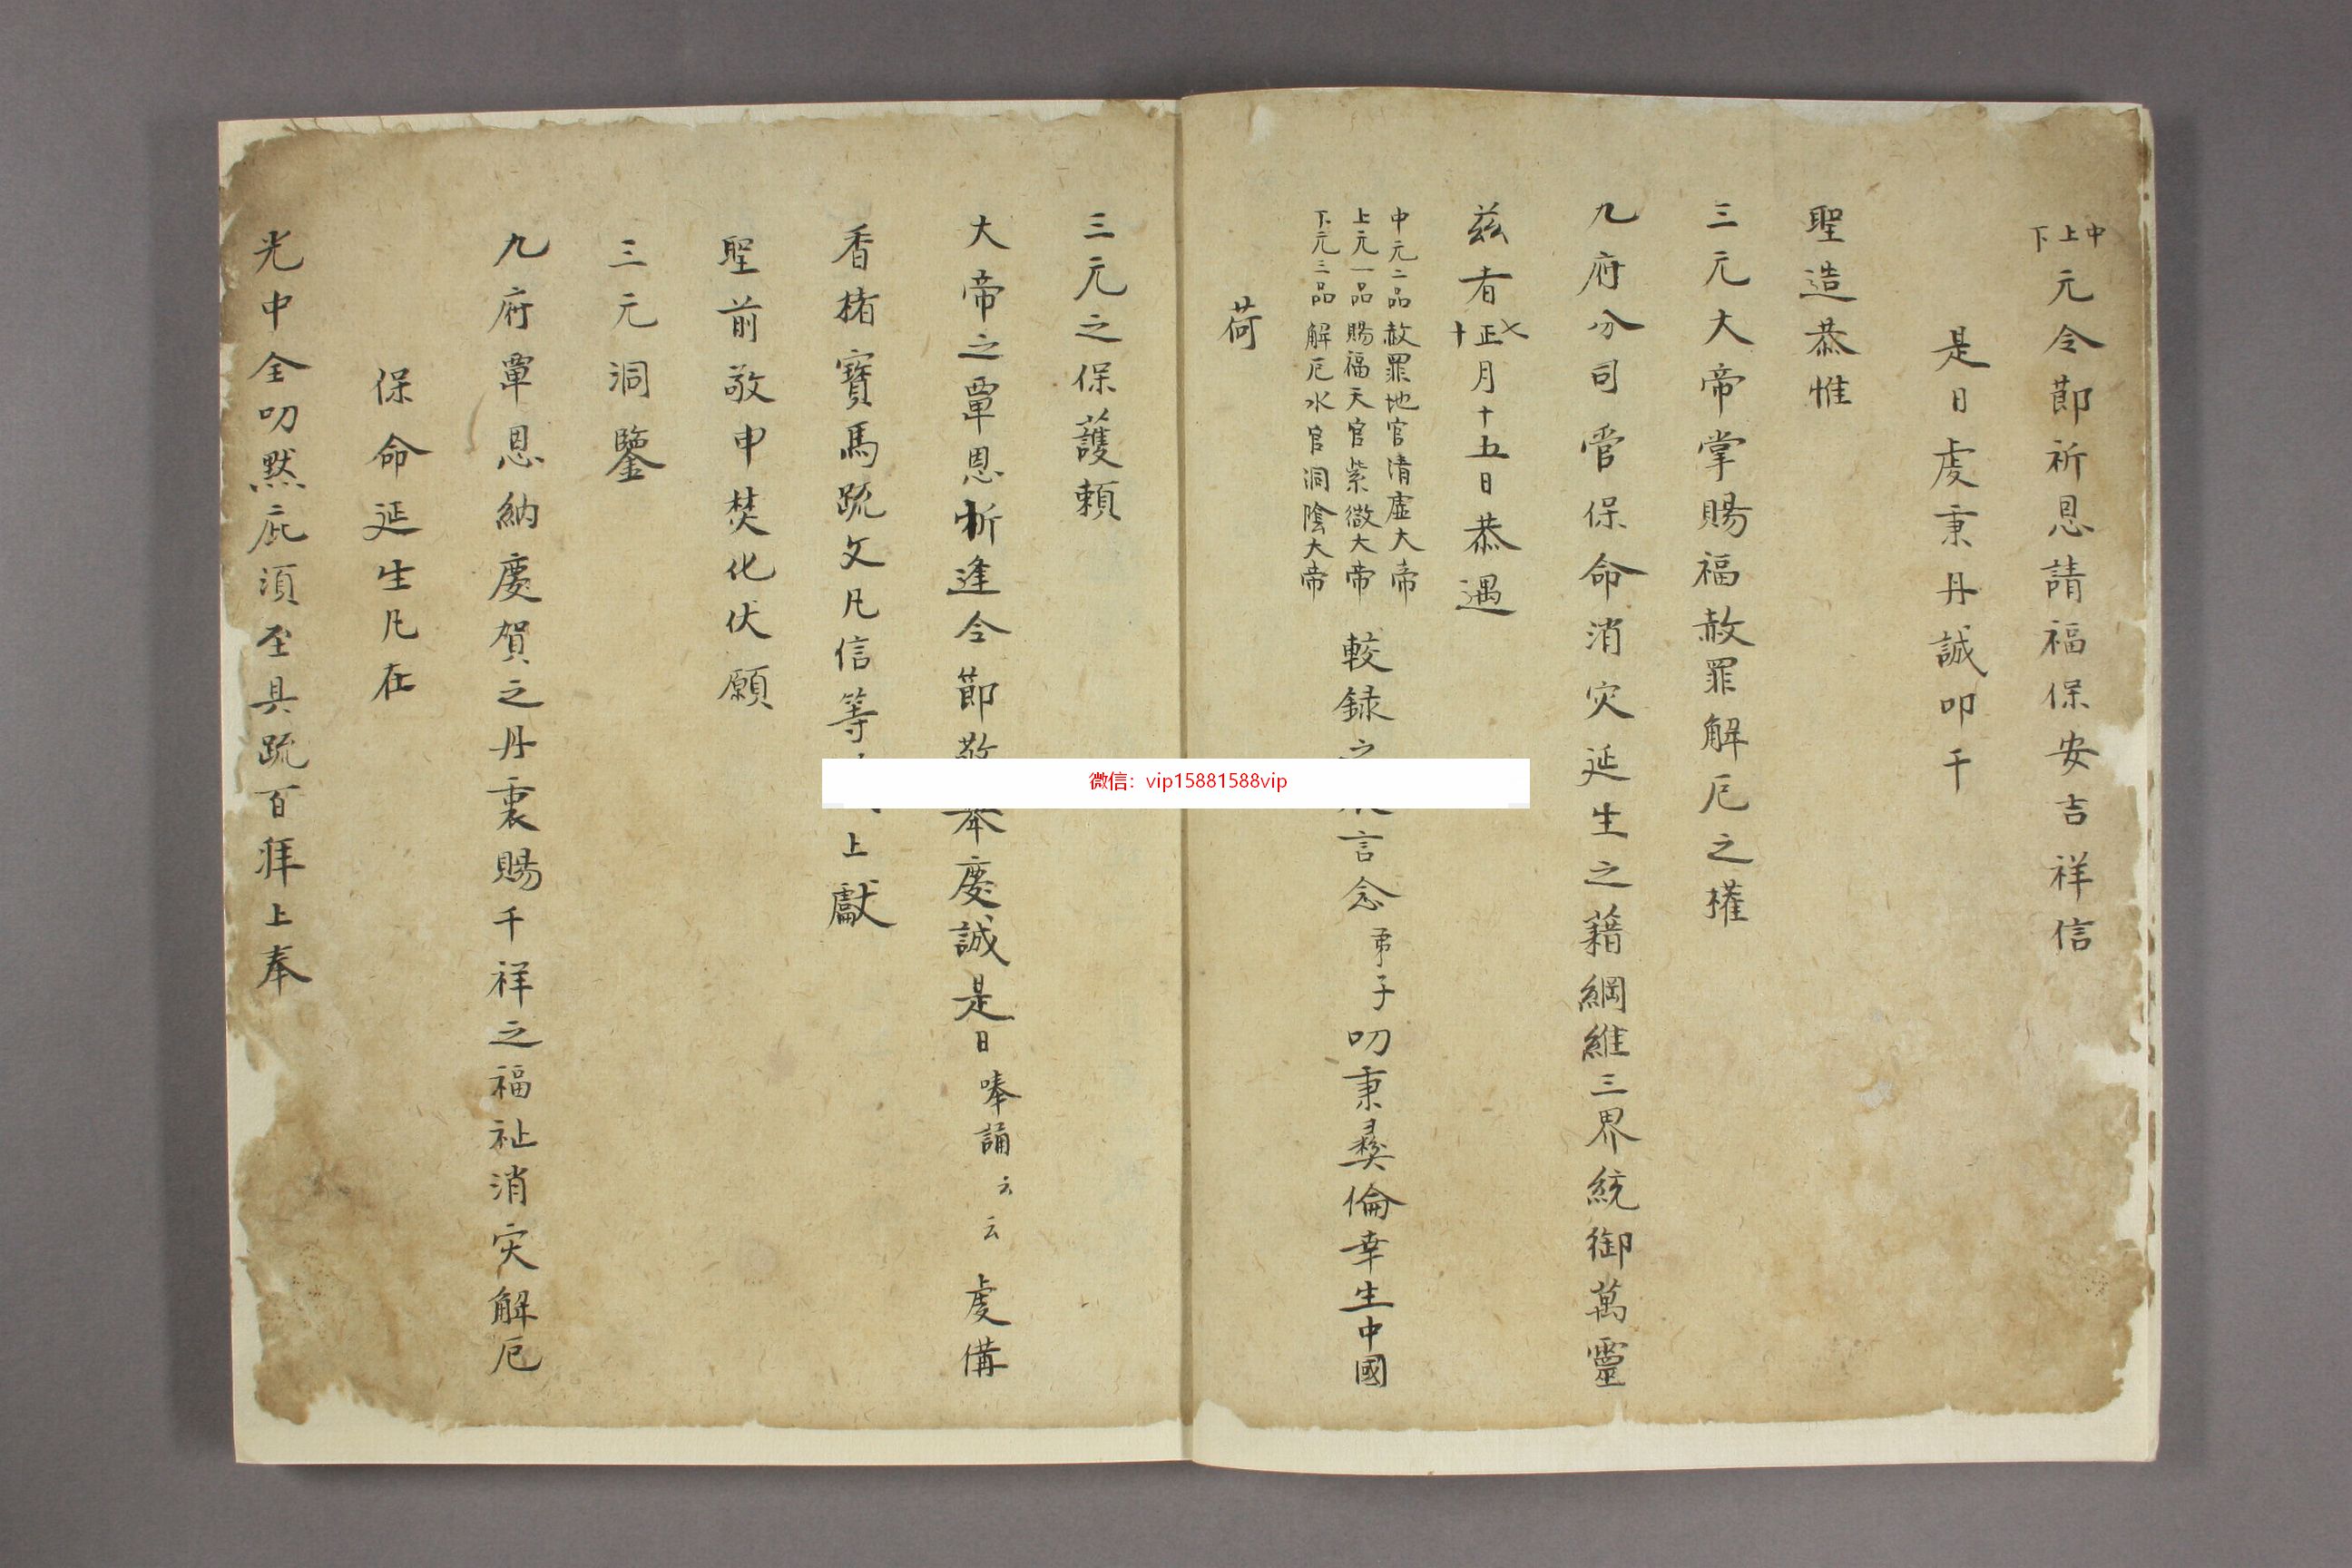 中上下元令節祈恩請福保安吉祥信
是日虔秉丹誠叩干
聖造恭惟
三元大帝掌賜福赦罪解厄之權
九府分司管保命消灾延生之藉綱維三界統御萬靈
茲者七正十月十五日恭遇
中元二品赦罪地官清虛大帝
上元一品賜福天官紫微大帝
下元三品解厄水官洞陰大帝
較録之 言念弟子叨秉彝倫幸生中國
荷
三元之保護頼
大帝之覃恩忻逢令節敬奉慶誠是日唪誦云云虔備
香楮寳馬疏文凡信等 上獻
聖前敬申焚化伏願
三元洞鑒
九府覃恩納慶賀之丹裏賜千祥之福祉消灾解厄
保命延生凡在
光中全叨黙庇湏至具疏百拜上奉
微信：vip15881588vip